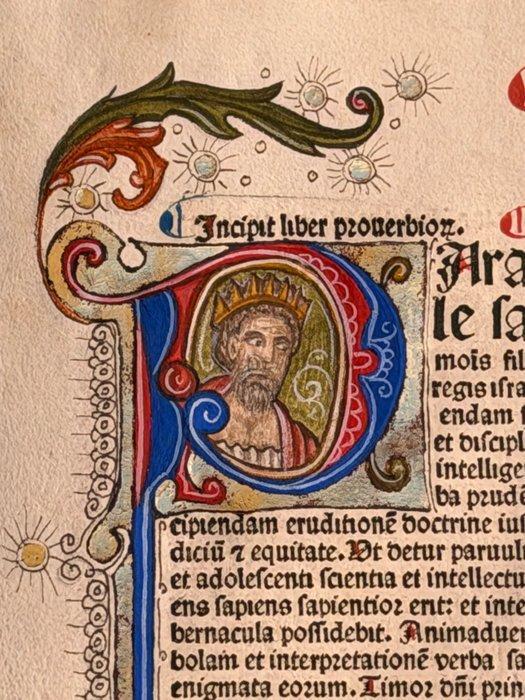 Incipit liber prouerbioꝝ.
PAra
le ſa
mois fil
regis iſra
endam
et diſcipl
intellige
ba prud
cipiendam eruditionē doctrine iu
diciū ⁊ equitate. Ut detur paruul
et adoleſcenti ſcientia et intellectu
ens ſapiens ſapientior erit: et inte
bernacula poſſidebit. Animaduer
bolam et interpretationē verba ſa
enigmata eorum. Timor dñi prin